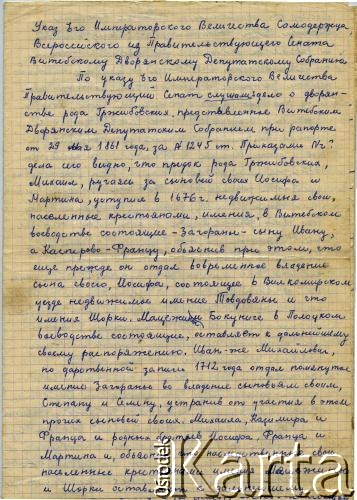 Указ Его Императорского Величества Самодержца
Всероссийского из Правительствующего Сената
Витебскому Дворянскому Депутатскому Собранию.
По указу Его Императорского Величества
Правительствующий Сенат слушали дело о дворян-
стве рода Гржибовских, представленные Витебским
Дворянским Депутатским Собранием при рапорте
от 29 мая 1861 года, за № 1245 ст. Приказали
дела его видно, что предок рода Гржибовских,
Михаил, ручаясь за сыновей своих Иосифа и
Мартина, уступил в 1676 г. недвижимые свои,
населенные крестьянами, имения, в Витебском
воеводстве состоящие - Загораны - сыну Ивану,
а Касперово - Францу, объяснив при этом, что
еще прежде он отдал во временное владение
сына своего, Иосифа, состоящее в Вилкомирском
уезде недвижимое имение Товдовяны и что
имения Шорки, Бокунисе в Полоцком
воеводстве состоящие, оставляет к дальнейшему
своему распоряжению, Иван-же Михайлович,
по дарственной записи 1712 года отдал помянутое
имение Загораны во владение сыновьям своим,
Степану и Семену, устранив от участия в этом
прочих сыновей своих, Михаила, Казимира и
Франца и родных Иосифа, Франца и
Мартина и, свои
населенные крестьянами имения
и Шорки
Ośrodek
Karta